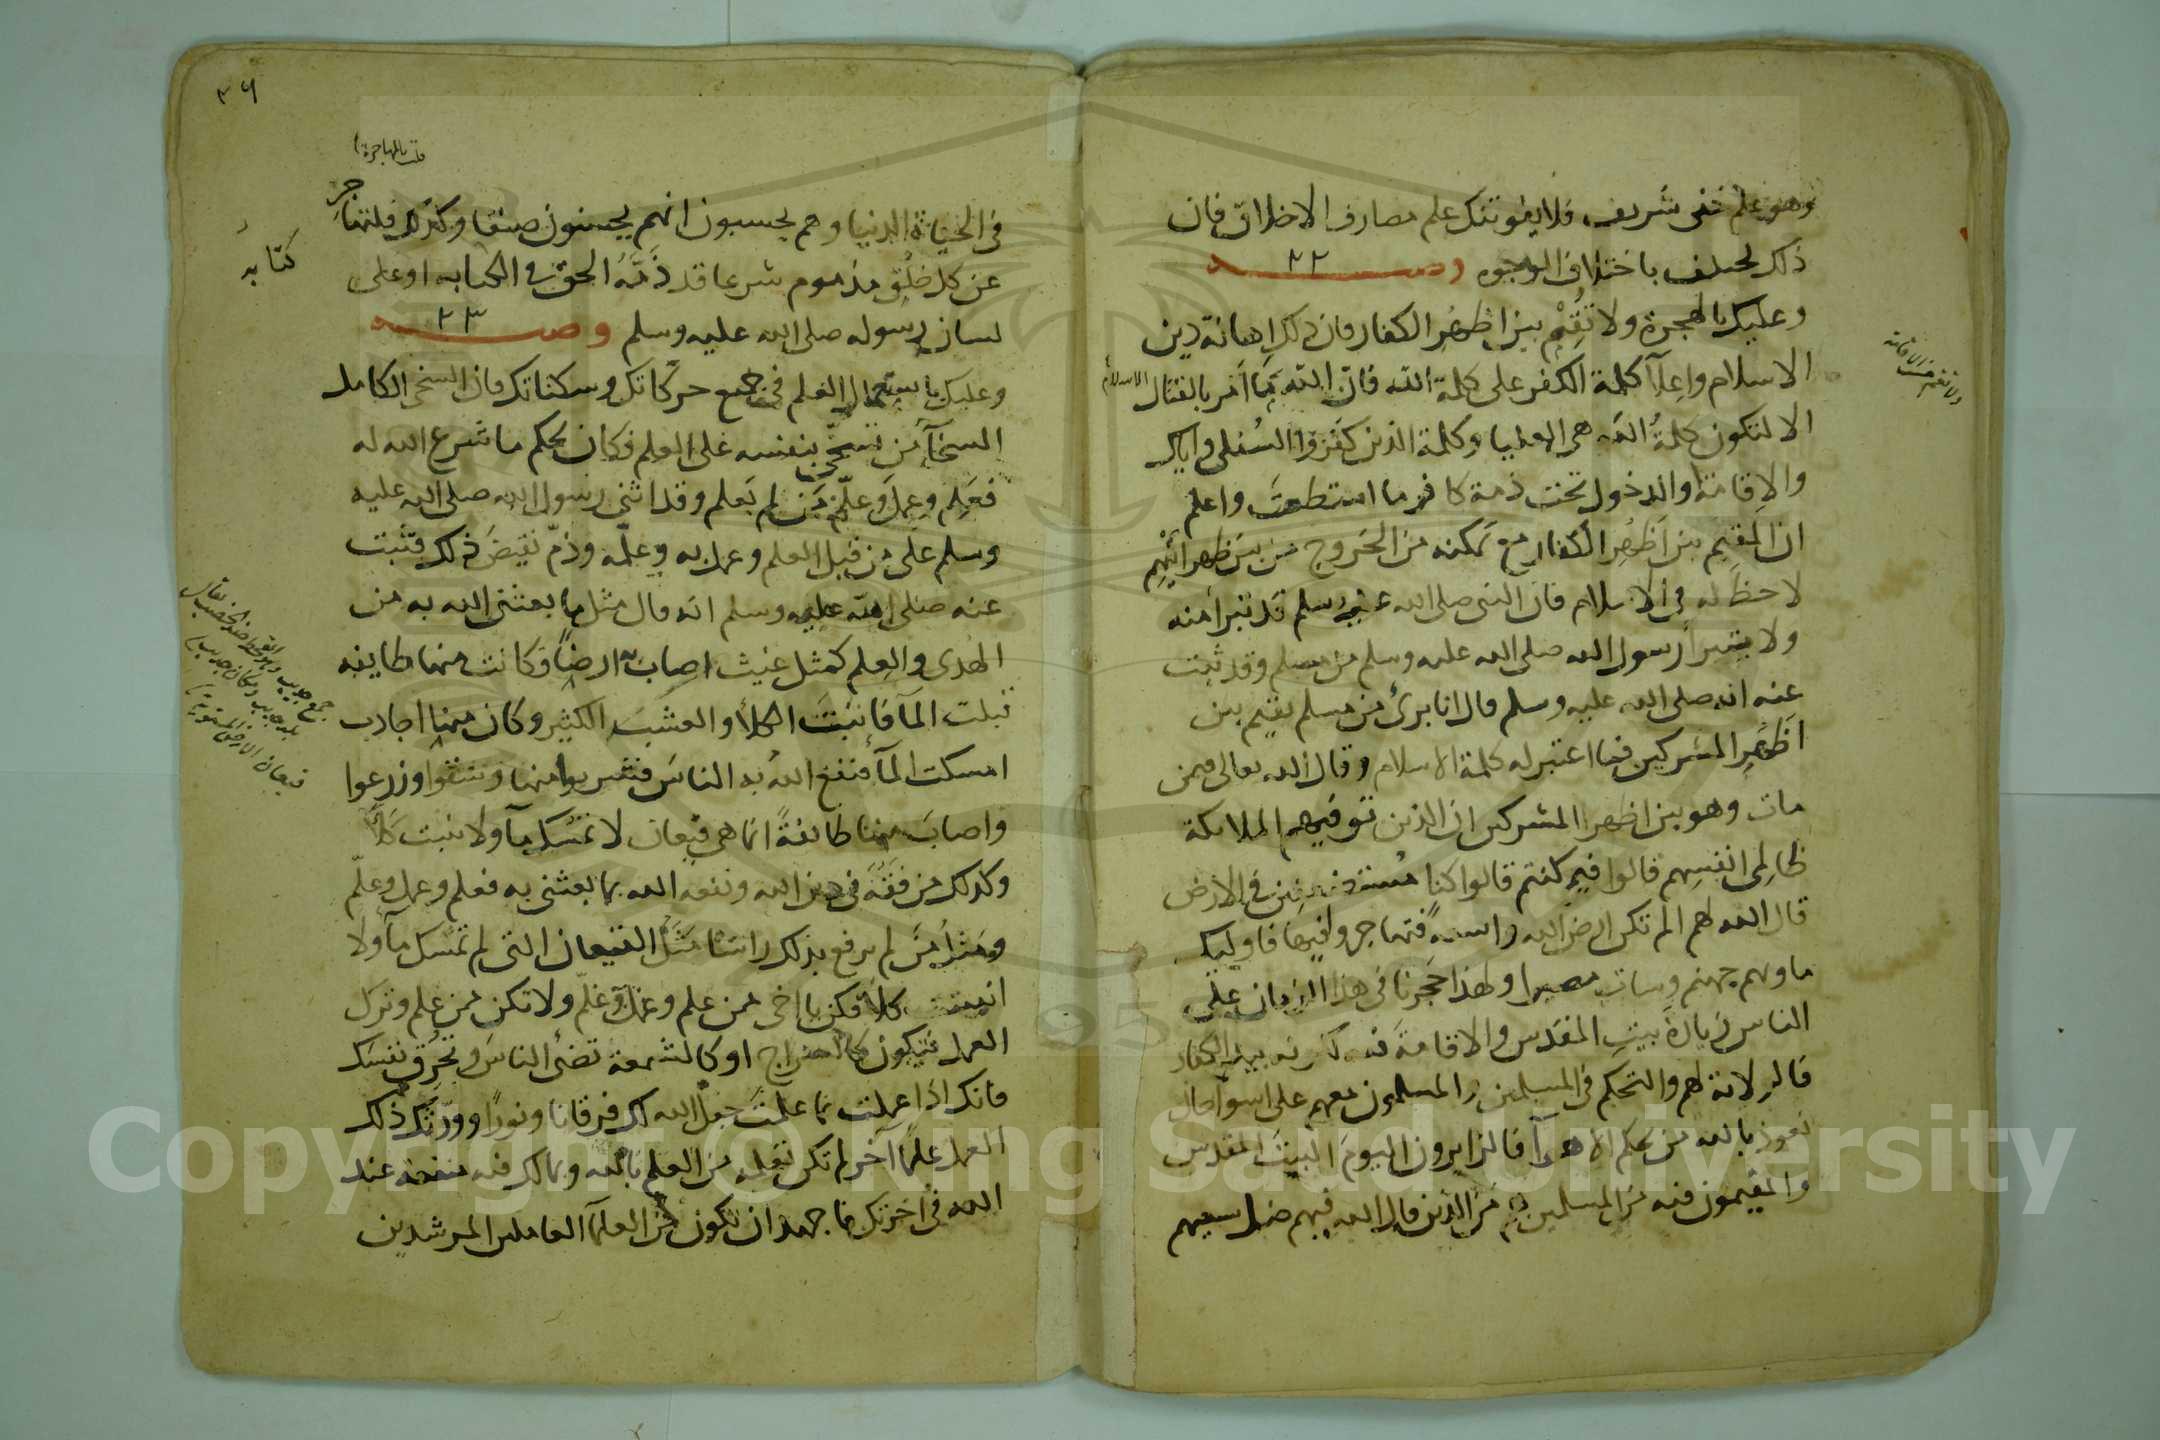 وهو علم خفي شريف فلا يفوتنك علم مصارف الاخلاق فان
ذلك يختلف باختلاف الوجوه وصــــــية ٢٢
وعليك بالهجرة ولا تُقِمْ بين اظهُر الكفار فان ذلك اهانة دين
الاسلام واعلآ كلمة الكفر على كلمة الله فان الله مَا اَمَر بالقتال
الا لتكون كلمةُ الله هى العليا وكلمة الذين كَفَرُوا السُفلى واياك
والاقامة او الدخول تحت ذمة كافر ما استطعتَ واعلم
ان المقيم بين اظهُر الكفار مع تمكنه من الخروج من بين ظهرانيْهِم
لا حظ له فى الاسلام فان النبى صلى الله عليه وسلم قد تبرأ منه
ولا يتبرأ رسول الله صلى الله عليه وسلم من مسلم وقد ثبت
عنه انه صلى الله عليه وسلم قال انا برئ من مسلم يقيم بين
اظهُرِ المشركين فما اعتبر له كلمة الاسلام وقال الله تعالى فيمن
مات وهو بين اظهر المشركين ان الذين توفيهم الملائكة
ظالمى انفسِهم قالوا فيم كنتم قالوا كنا مُستضعفين فى الارض
قال الله لهم الم تكن ارض الله واسعةً فتهاجروا فيها فاوليك
ماويهم جهنم وسات مصيرا ولهذا حَجرنا فى هذا الزمان على
الناس زيارةَ بيت المقدس والاقامةَ فيه لكونه بيد الكفار
فالولاية لهم والتحكم فى المسلمين والمسلمون معهم على اسوأ حال
نعوذ بالله من تحكم الاهوآ فالزايرون اليومَ البيتَ المقدس
والمقيمون فيه من المسلمين هم من الذين قال الله فيهم ضل سعيهم
الاسلام
٣٦
قلت بالمهاجرة
فى الحياة الدنيا وهم يحسبون انهم يحسنون صنعا وكذلك فلتهاجر
عن كل خُلُقٍ مذموم شرعا قد ذَمَّهُ الحق فى الكتابه او على
لسان رسوله صلى الله عليه وسلم وصــــــية ٢٣
وعليك باستعمال العلم فى جميع حركاتك وسكناتك فان السخى الكامل
السخآ من تسخّى بنفسه على العلم فكان بحكم ما شرع الله له
فعَلِم وعمل وعلّم مَن لم يَعلم وقد اثنى رسول الله صلى الله عليه
وسلم على من قَبِلَ العلم وعمل به وعلّمه وذمّ نقيضَ ذلك فثبت
عنه صلى الله عليه وسلم انه قال مثل ما بعثنى الله به من
الهدى والعلم كمثل غيث اصاب ارضًا فكانت منها طايفه
قبلت المآ فانبتَت الكلأ والعشبَ الكثير وكان منها اجادب
امسكت المآ فنفع الله به الناسَ فشربوا منها وسَقَوا وزرعوا
واصابَ منها طائفةً انما هى قيعان لا تمسك مآ ولا تنبت كلأً
وكذلك من فقُهَ فى دين الله ونفعه الله بما بعثنى به فعلم وعمل وعلّم
ومثلُ مَن لم يرفع بذلك راسًا مَثَلُ القيعان التى لم تمسك مآ ولا
انبتت كلأ فكن يا اخى ممن علم وعمِلَ وعَلّم ولا تكن ممن علم وترك
العمل فتكون كالسراج او كالشمعة تضئ الناسَ وتحرُق نفسَك
فانك اذا عملت بما علمتَ جعل الله لك فرقانا ونورًا وورّثك ذلك
العمل علمًا آخر لم تكن تعلمه من العلم بالله وبما لك فيه منفعة عند
الله فى اخرتك فاجهد ان تكون من العلمآ العاملين المرشدين
كتابهِ